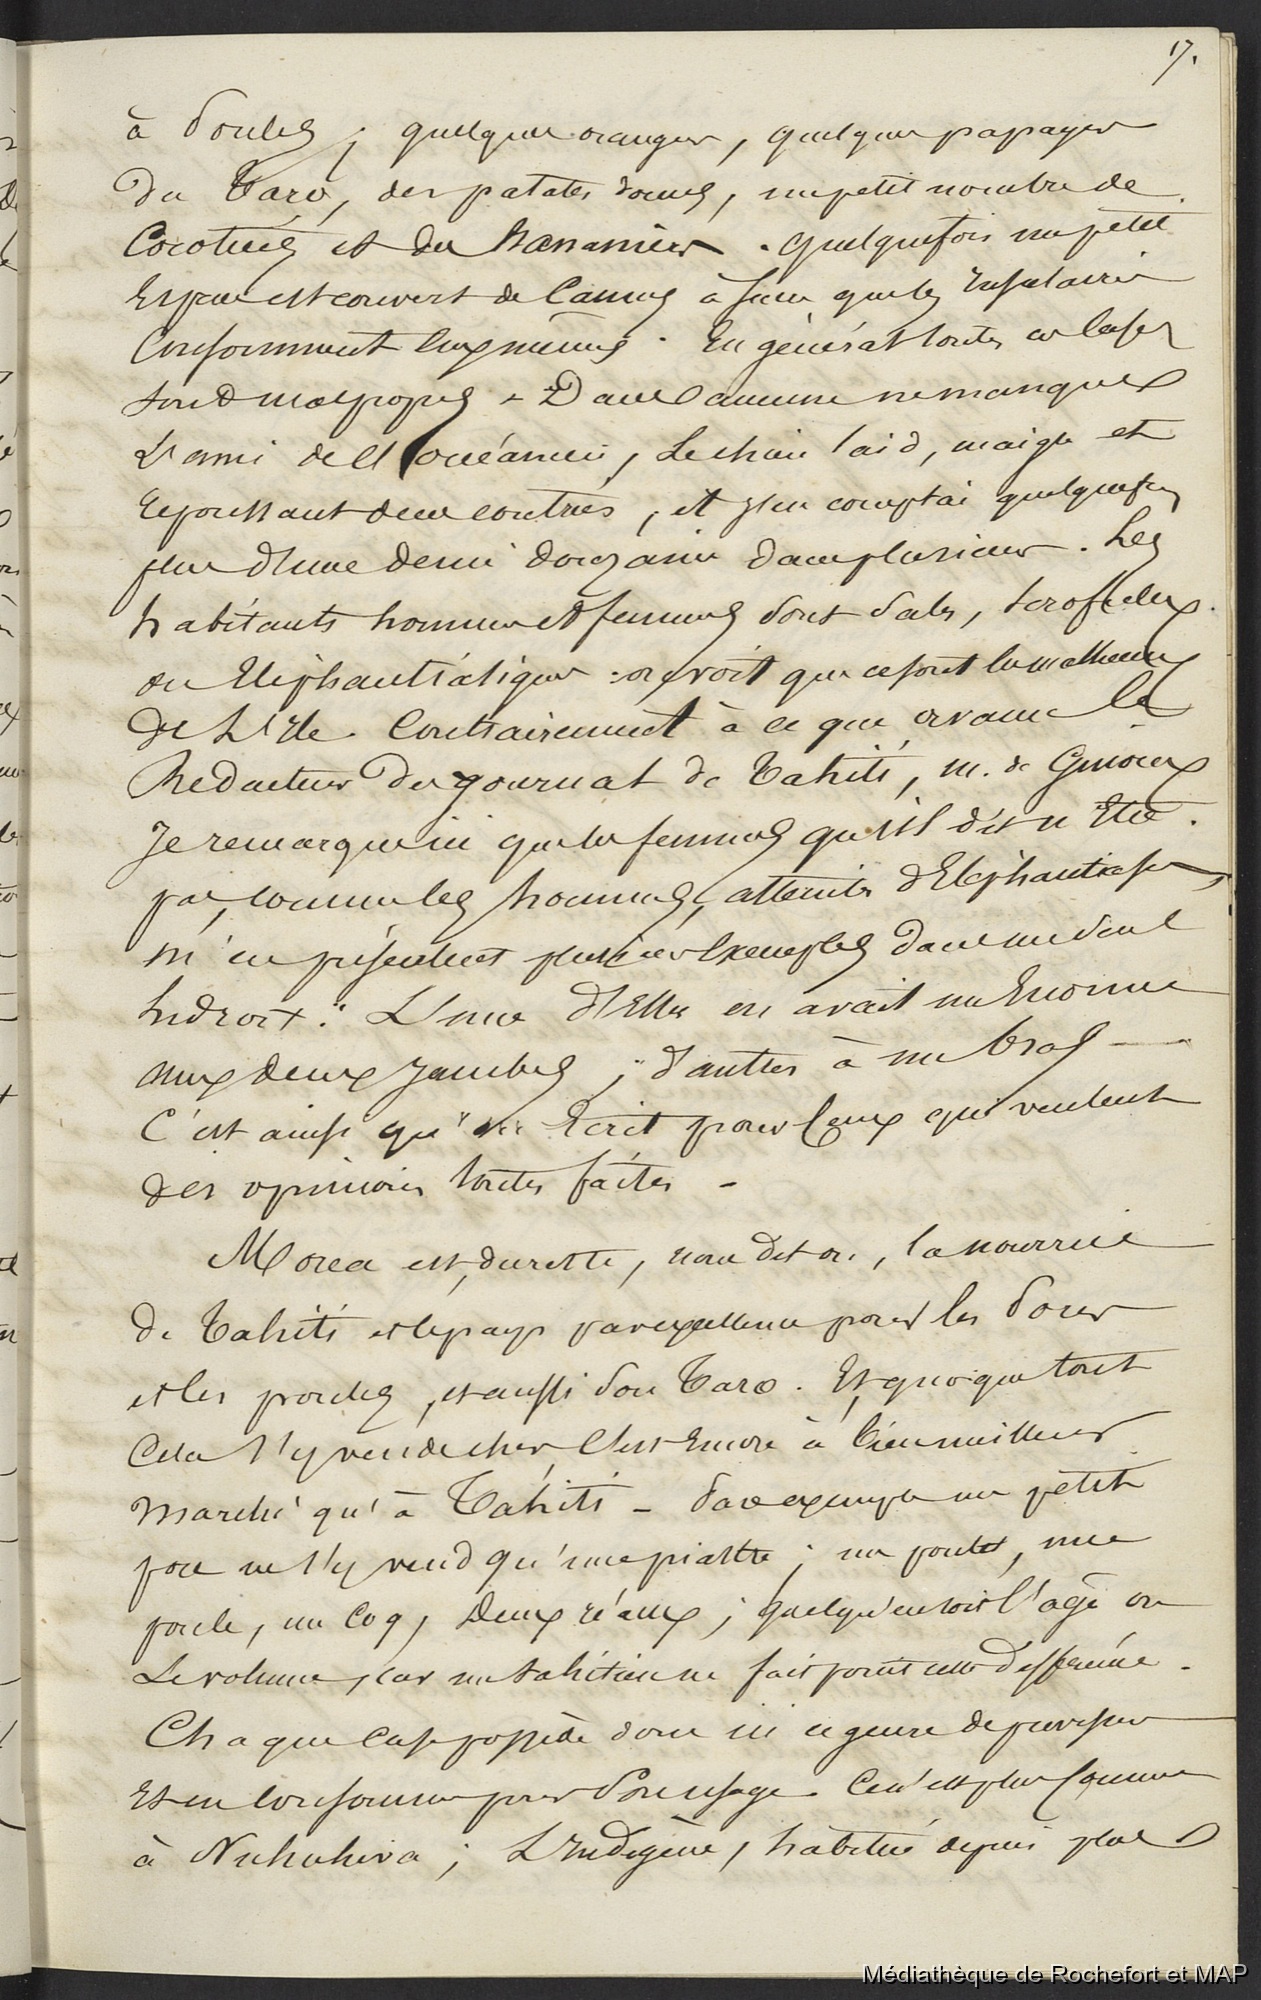 17.
à poules ; quelques orangers, quelques papayers
du Taro, des patates douces, un petit nombre de
Cocotiers et des Bananiers. quelquefois un petit
Espace est couvert de Cannes à sucre que les Insulaires
Consomment eux mêmes. En général toutes ces cases
sont malpropres - Dans aucune ne manque
L'ami de l'océanien, le chien laid, maigre et
repoussant de ces contrées, et j'en comptai quelquefois
plus d'une demi douzaine dans plusieurs. Les
habitants hommes et femmes sont sales, scrofuleux
ou Eléphantiasiques : on voit que ce sont les malheureux
de L'Ile. Contrairement à ce que avance le
Rédacteur du journal de Tahiti, m. de Ginoux
Je remarque ici que les femmes qu'il dit n'Etre
pas, comme les hommes, atteintes d'Elephantiasis,
m'en présentent plusieurs Exemples dans un seul
Endroit : L'une d'Elles en avait un Enorme
aux deux jambes ; d'autres à un bras —
C'est ainsi qu'on Ecrit pour Ceux qui veulent
des opinions toutes faites -
Morea est, du reste, nous dit on, la nourrice
de Tahiti et le pays par excellence pour les porcs
et les poules, et aussi son Taro. Et quoique tout
Cela s'y vende cher, C'est Encore à bien meilleur
marché qu'à Tahiti - par exemple un petit
porc ne s'y vend qu'une piastre ; un poulet, une
poule, un Coq, Deux réaux ; quelqu'en soit l'âge ou
Le volume, car un tahitien ne fait point cette différence.
Chaque Case possède donc ici ce genre de provision
Et en Consomme pour son usage. Ce n'est plus Comme
à Nukuhiva ; L'Indigène, habitué depuis plus
Médiathèque de Rochefort et MAP